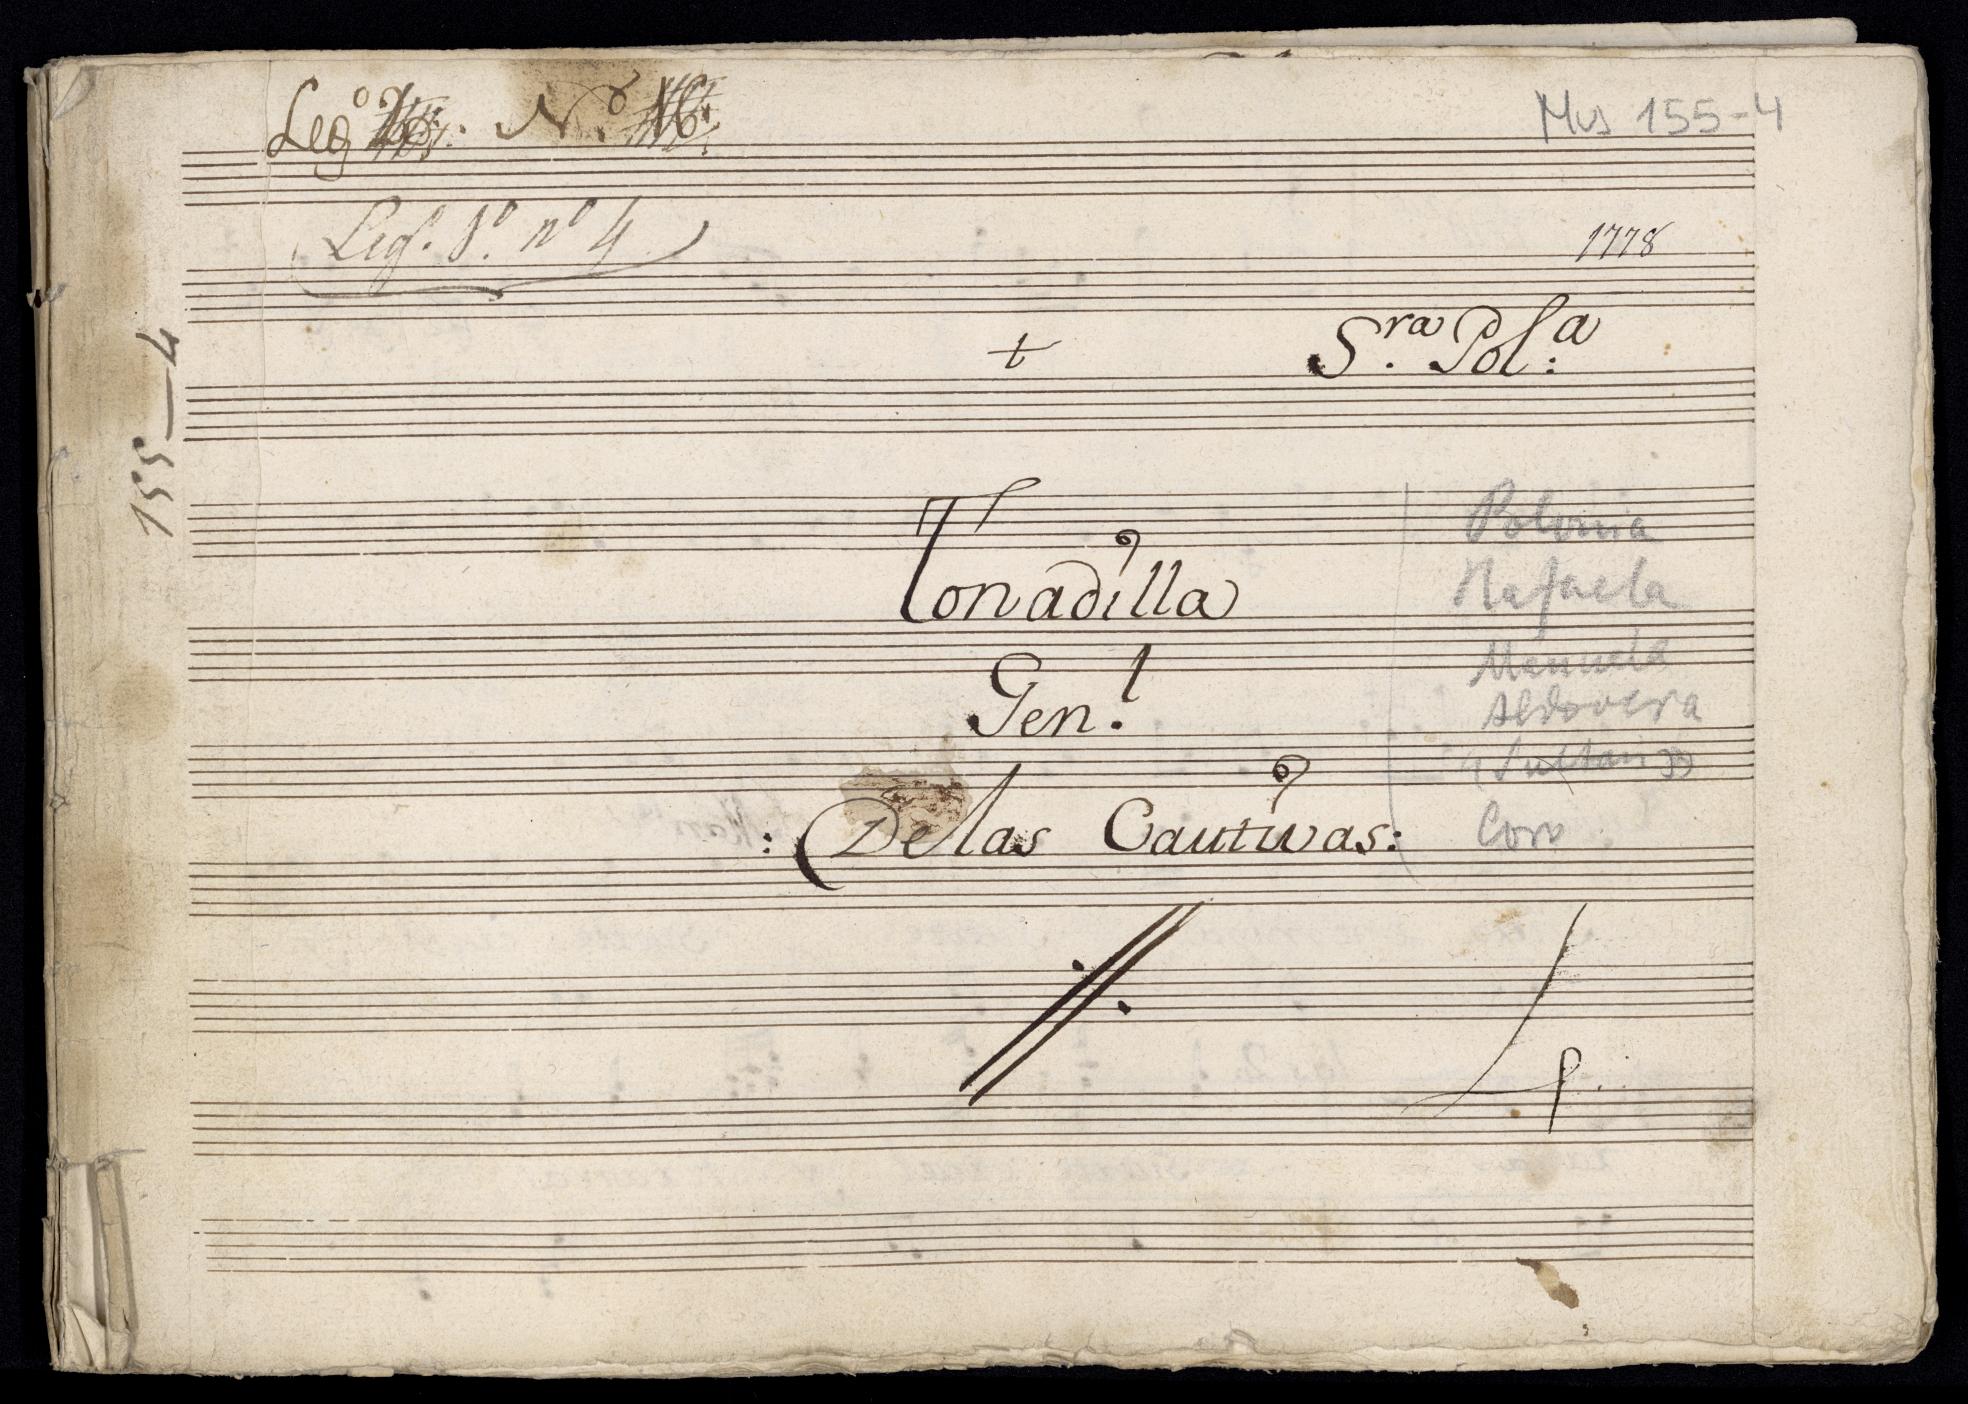 Leg.º N.º
Mus 155-4
Leg.º 1.º nº 4
1778
155-4
t
S.ra Pol.a
Tonadilla
Gen.l
: De las Cautivas:
Polonia
Rafaela
Manuela
Aldovera
Coro